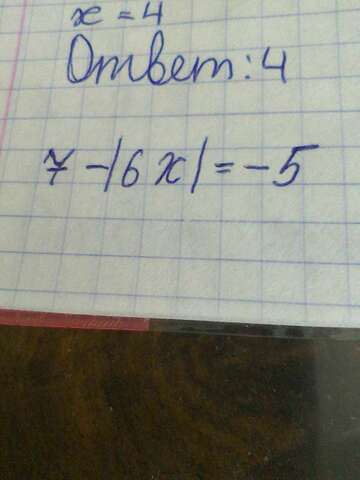 x = 4
Ответ: 4
7 - |6x| = -5